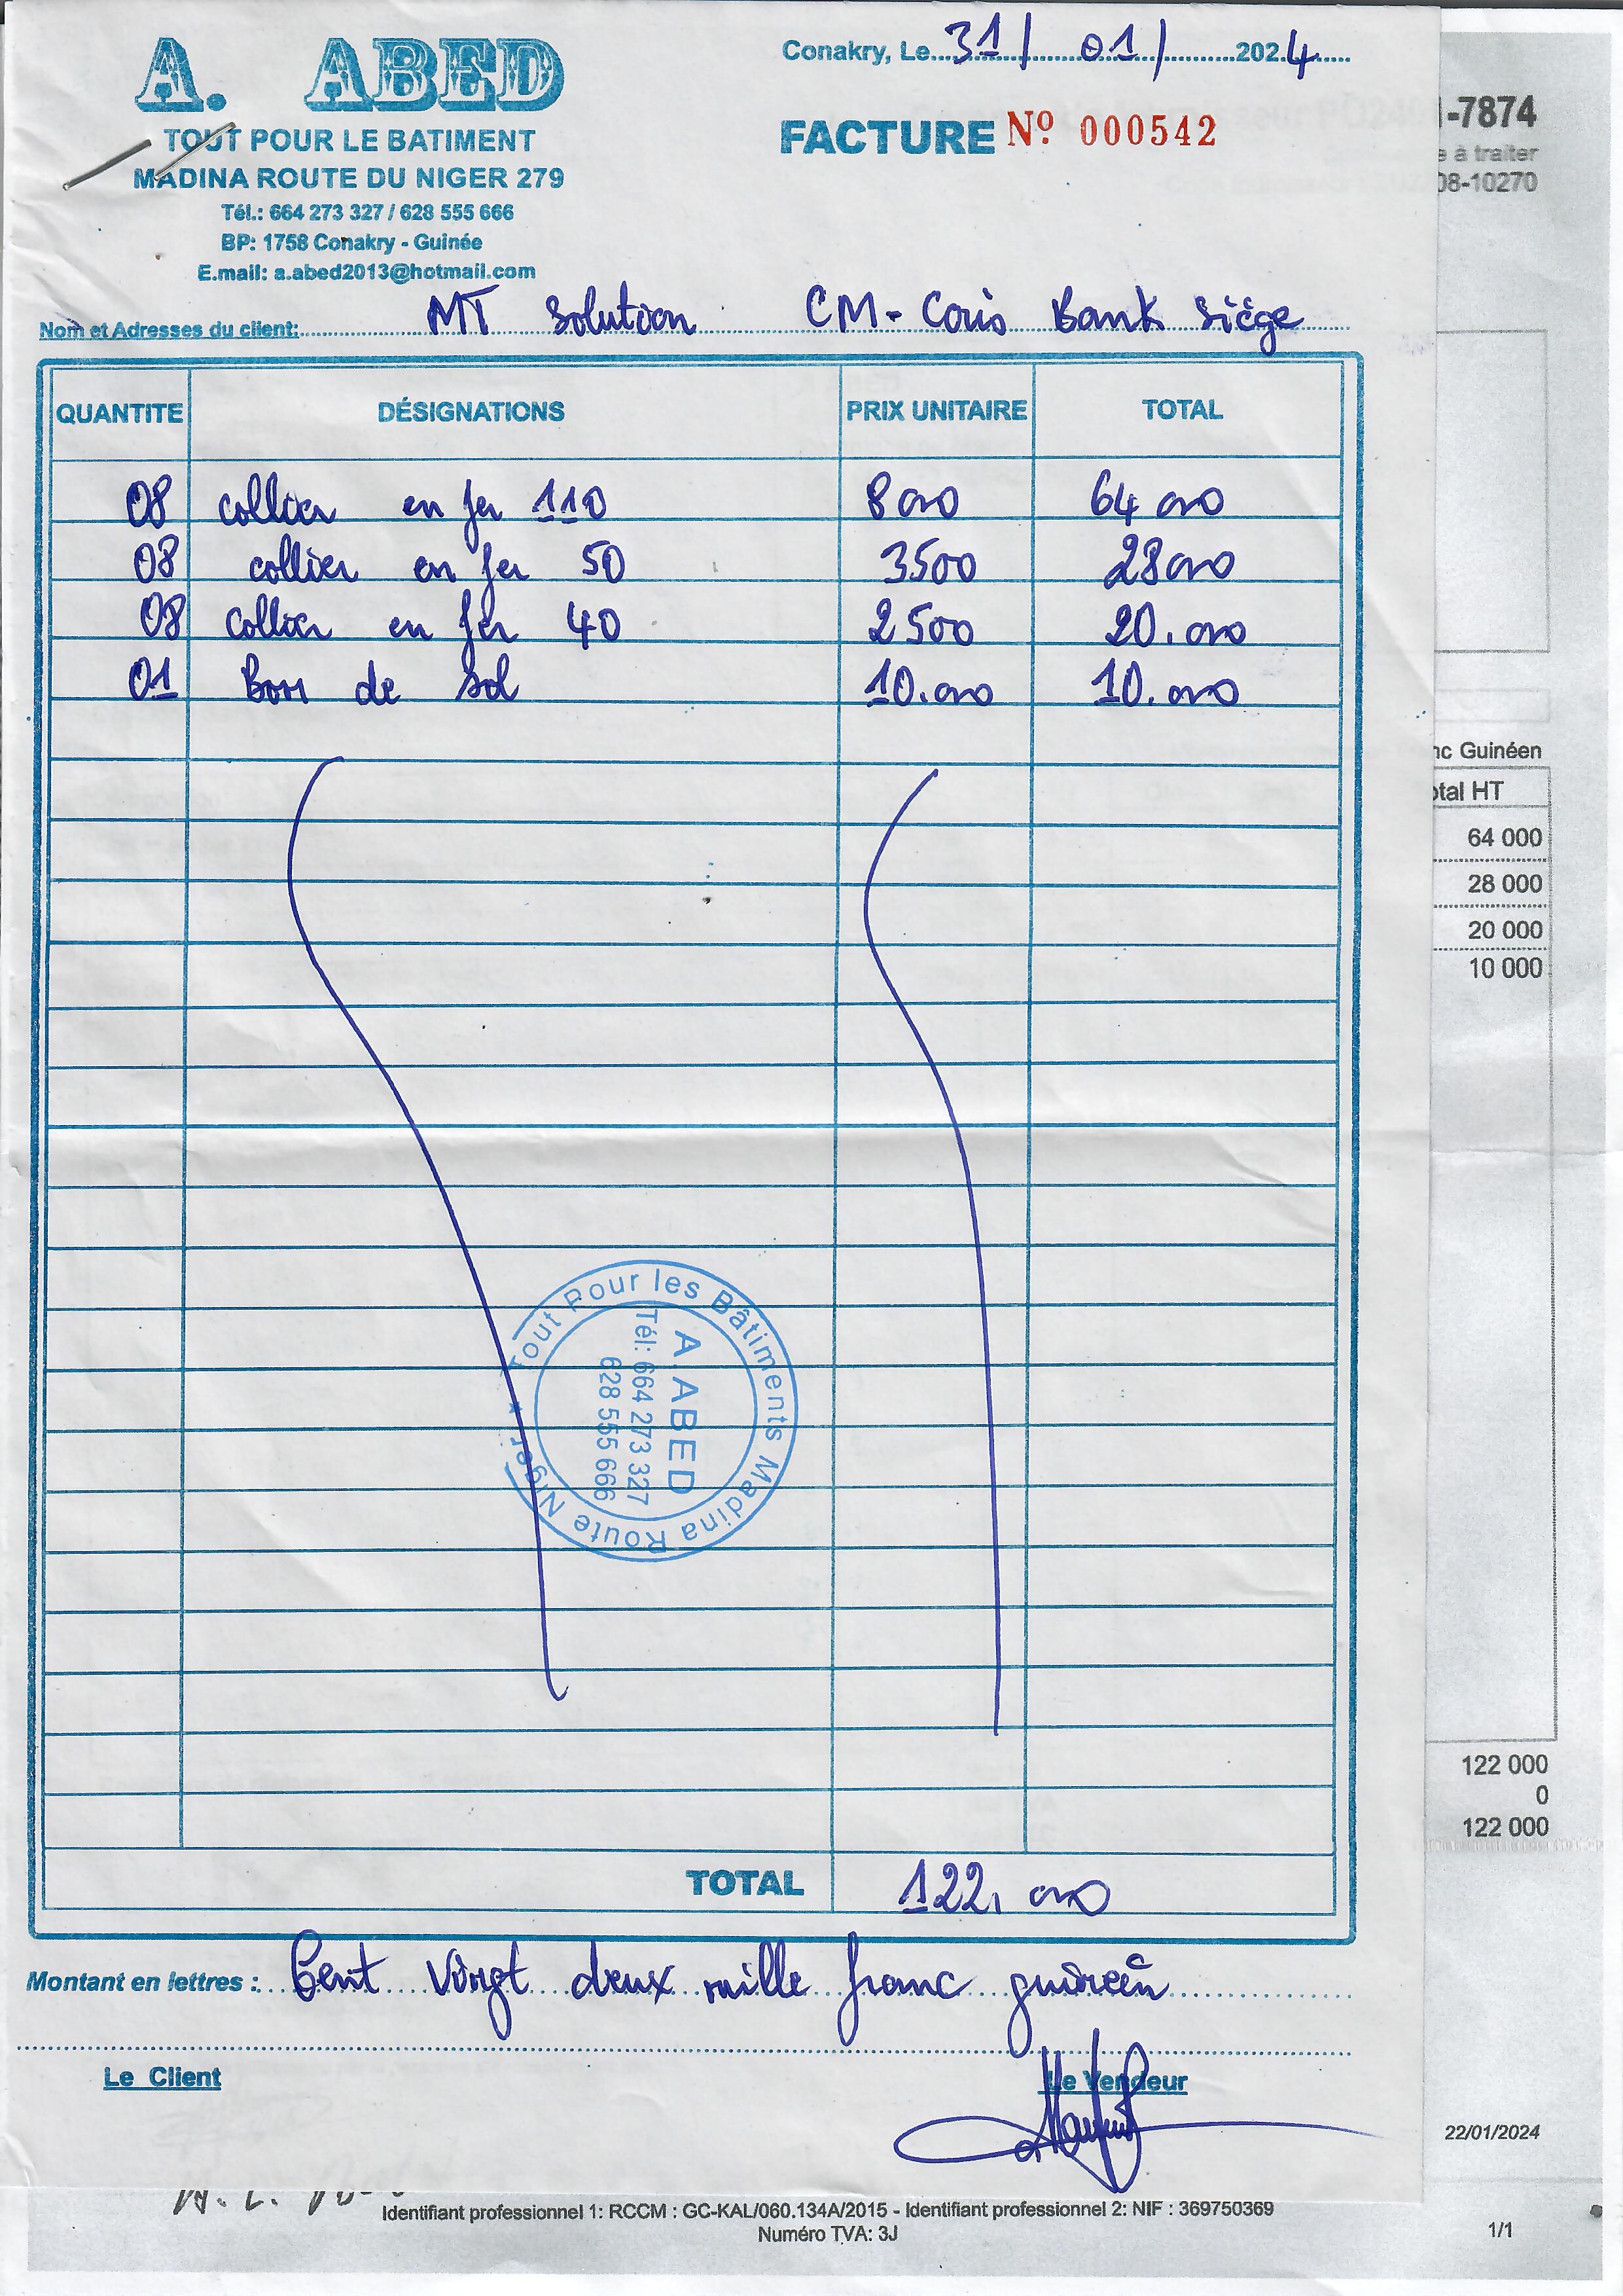 A. ABED
TOUT POUR LE BATIMENT
MADINA ROUTE DU NIGER 279
Tél.: 664 273 327 / 628 555 666
BP: 1758 Conakry - Guinée
E.mail: a.abed2013@hotmail.com
Conakry, Le 31/ 01/ 2024
FACTURE Nº 000542
-7874
e à traiter
08-10270
Nom et Adresses du client: MT Solution CM - Coris Bank Siége
QUANTITE DÉSIGNATIONS PRIX UNITAIRE TOTAL
08 collier en fer 110 8 000 64 000
08 collier en fer 50 3500 28 000
08 collier en fer 40 2500 20.000
01 Bon de Sol 10.000 10.000
nc Guinéen
otal HT
64 000
28 000
20 000
10 000
Tout Pour les Bâtiments Madina Route Niger
A. ABED
Tél: 664 273 327
628 555 666
122 000
0
122 000
TOTAL 122, 000
Montant en lettres : Cent Vingt deux mille franc guinéen
Le Client
Le Vendeur
22/01/2024
Identifiant professionnel 1: RCCM : GC-KAL/060.134A/2015 - Identifiant professionnel 2: NIF : 369750369
Numéro TVA: 3J
1/1